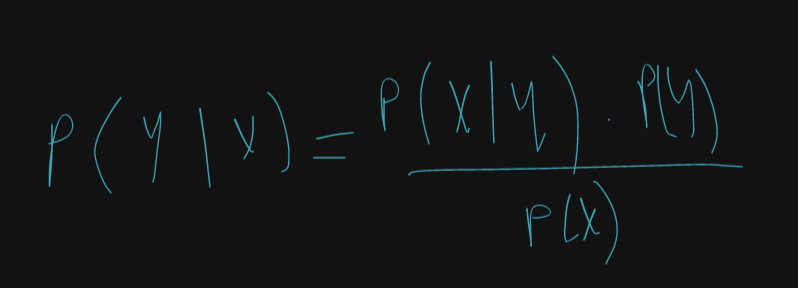 P(Y|X) = P(X|Y) · P(Y)
P(X)